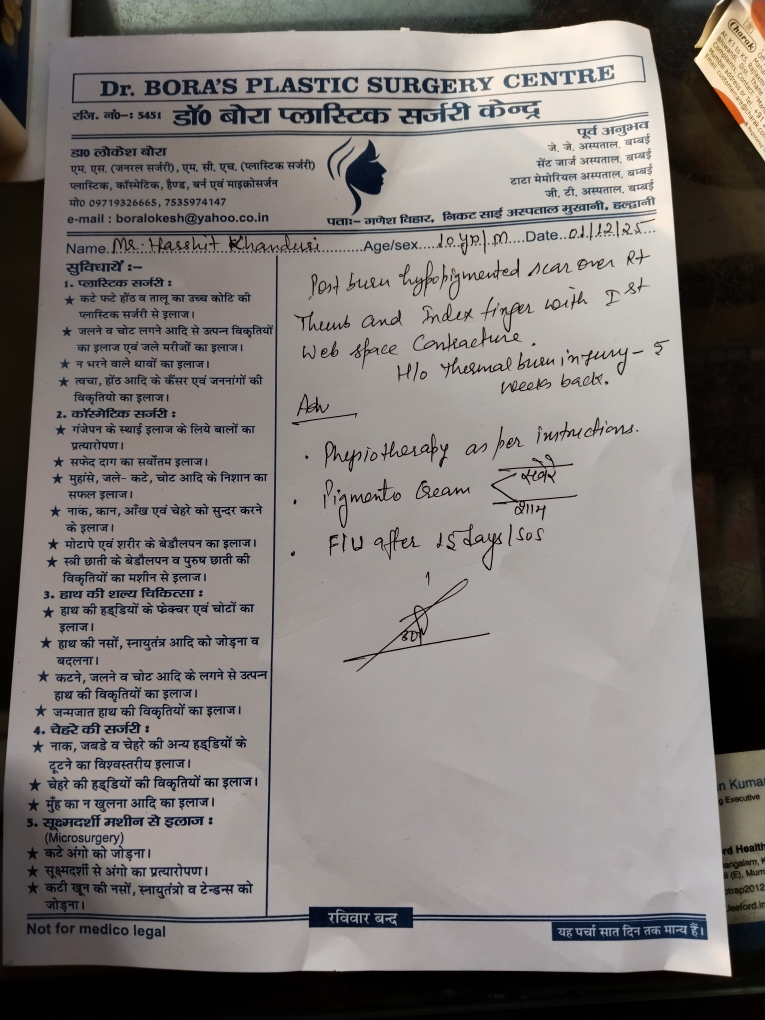 Dr. BORA'S PLASTIC SURGERY CENTRE
रजि. नं०-: 5451 डॉ0 बोरा प्लास्टिक सर्जरी केन्द्र
डा0 लोकेश बोरा
एम. एस. (जनरल सर्जरी), एम. सी. एच. (प्लास्टिक सर्जरी)
प्लास्टिक, कॉस्मेटिक, हैण्ड, बर्न एवं माइक्रोसर्जन
मो0 09719326665, 7535974147
e-mail : boralokesh@yahoo.co.in
पूर्व अनुभव
जे. जे. अस्पताल, बम्बई
सेंट जार्ज अस्पताल, बम्बई
टाटा मेमोरियल अस्पताल, बम्बई
जी. टी. अस्पताल, बम्बई
पताः- गणेश विहार, निकट साई अस्पताल मुखानी, हल्द्वानी
Name Mr. Harshit Khanduri Age/sex 10 yr/M Date 01/12/25
सुविधायें :-
1. प्लास्टिक सर्जरी :
★ कटे फटे होंठ व तालू का उच्च कोटि की
प्लास्टिक सर्जरी से इलाज।
★ जलने व चोट लगने आदि से उत्पन विकृतियों
का इलाज एवं जले मरीजों का इलाज।
★ न भरने वाले धावों का इलाज।
★ त्वचा, होंठ आदि के कैंसर एवं जननांगों की
विकृतियो का इलाज।
2. कॉस्मेटिक सर्जरी :
★ गंजेपन के स्थाई इलाज के लिये बालों का
प्रत्यारोपण।
★ सफेद दाग का सर्वोतम इलाज।
★ मुहांसे, जले- कटे, चोट आदि के निशान का
सफल इलाज।
★ नाक, कान, आँख एवं चेहरे को सुन्दर करने
के इलाज।
★ मोटापे एवं शरीर के बेडौलपन का इलाज।
★ स्त्री छाती के बेडौलपन व पुरुष छाती की
विकृतियों का मशीन से इलाज।
3. हाथ की शल्य चिकित्सा :
★ हाथ की हड्डियों के फ्रेक्चर एवं चोटों का
इलाज।
★ हाथ की नसों, स्नायुतंत्र आदि को जोड़ना व
बदलना।
★ कटने, जलने व चोट आदि के लगने से उत्पन्न
हाथ की विकृतियों का इलाज।
★ जन्मजात हाथ की विकृतियों का इलाज।
4. चेहरे की सर्जरी :
★ नाक, जबडे व चेहरे की अन्य हड्डियों के
टूटने का विश्वस्तरीय इलाज।
★ चेहरे की हड्डियों की विकृतियों का इलाज।
★ मुँह का न खुलना आदि का इलाज।
5. सूक्ष्मदर्शी मशीन से इलाज :
(Microsurgery)
★ कटे अंगो को जोड़ना।
★ सूक्ष्मदर्शी से अंगो का प्रत्यारोपण।
★ कटी खून की नसों, स्नायुतंत्रो व टेन्डन्स को
जोड़ना।
Post burn hypopigmented scar over Rt
Thumb and Index finger with Ist
Web space Contracture.
H/o Thermal burn injury - 5
weeks back.
Adv
. Physiotherapy as per instructions.
. Pigmento Cream < सवेरे
शाम
. F/U after 15 days / SOS
रविवार बन्द
Not for medico legal
यह पर्चा सात दिन तक मान्य हैं।
Charak
n Kumar
g Executive
rd Health